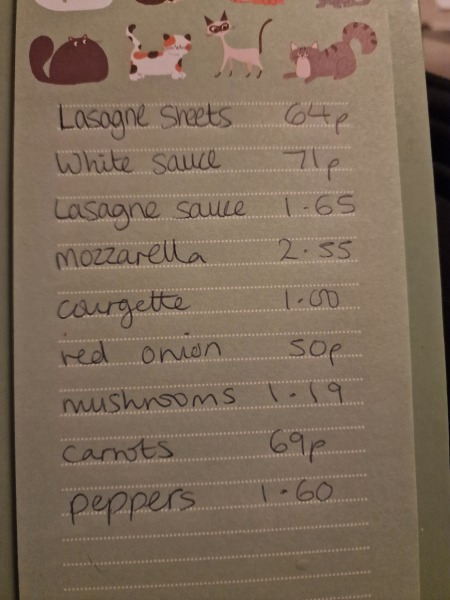 Lasagne sheets 64p
White sauce 71p
Lasagne sauce 1.65
mozzarella 2.55
courgette 1.00
red onion 50p
mushrooms 1.19
carrots 69p
peppers 1.60